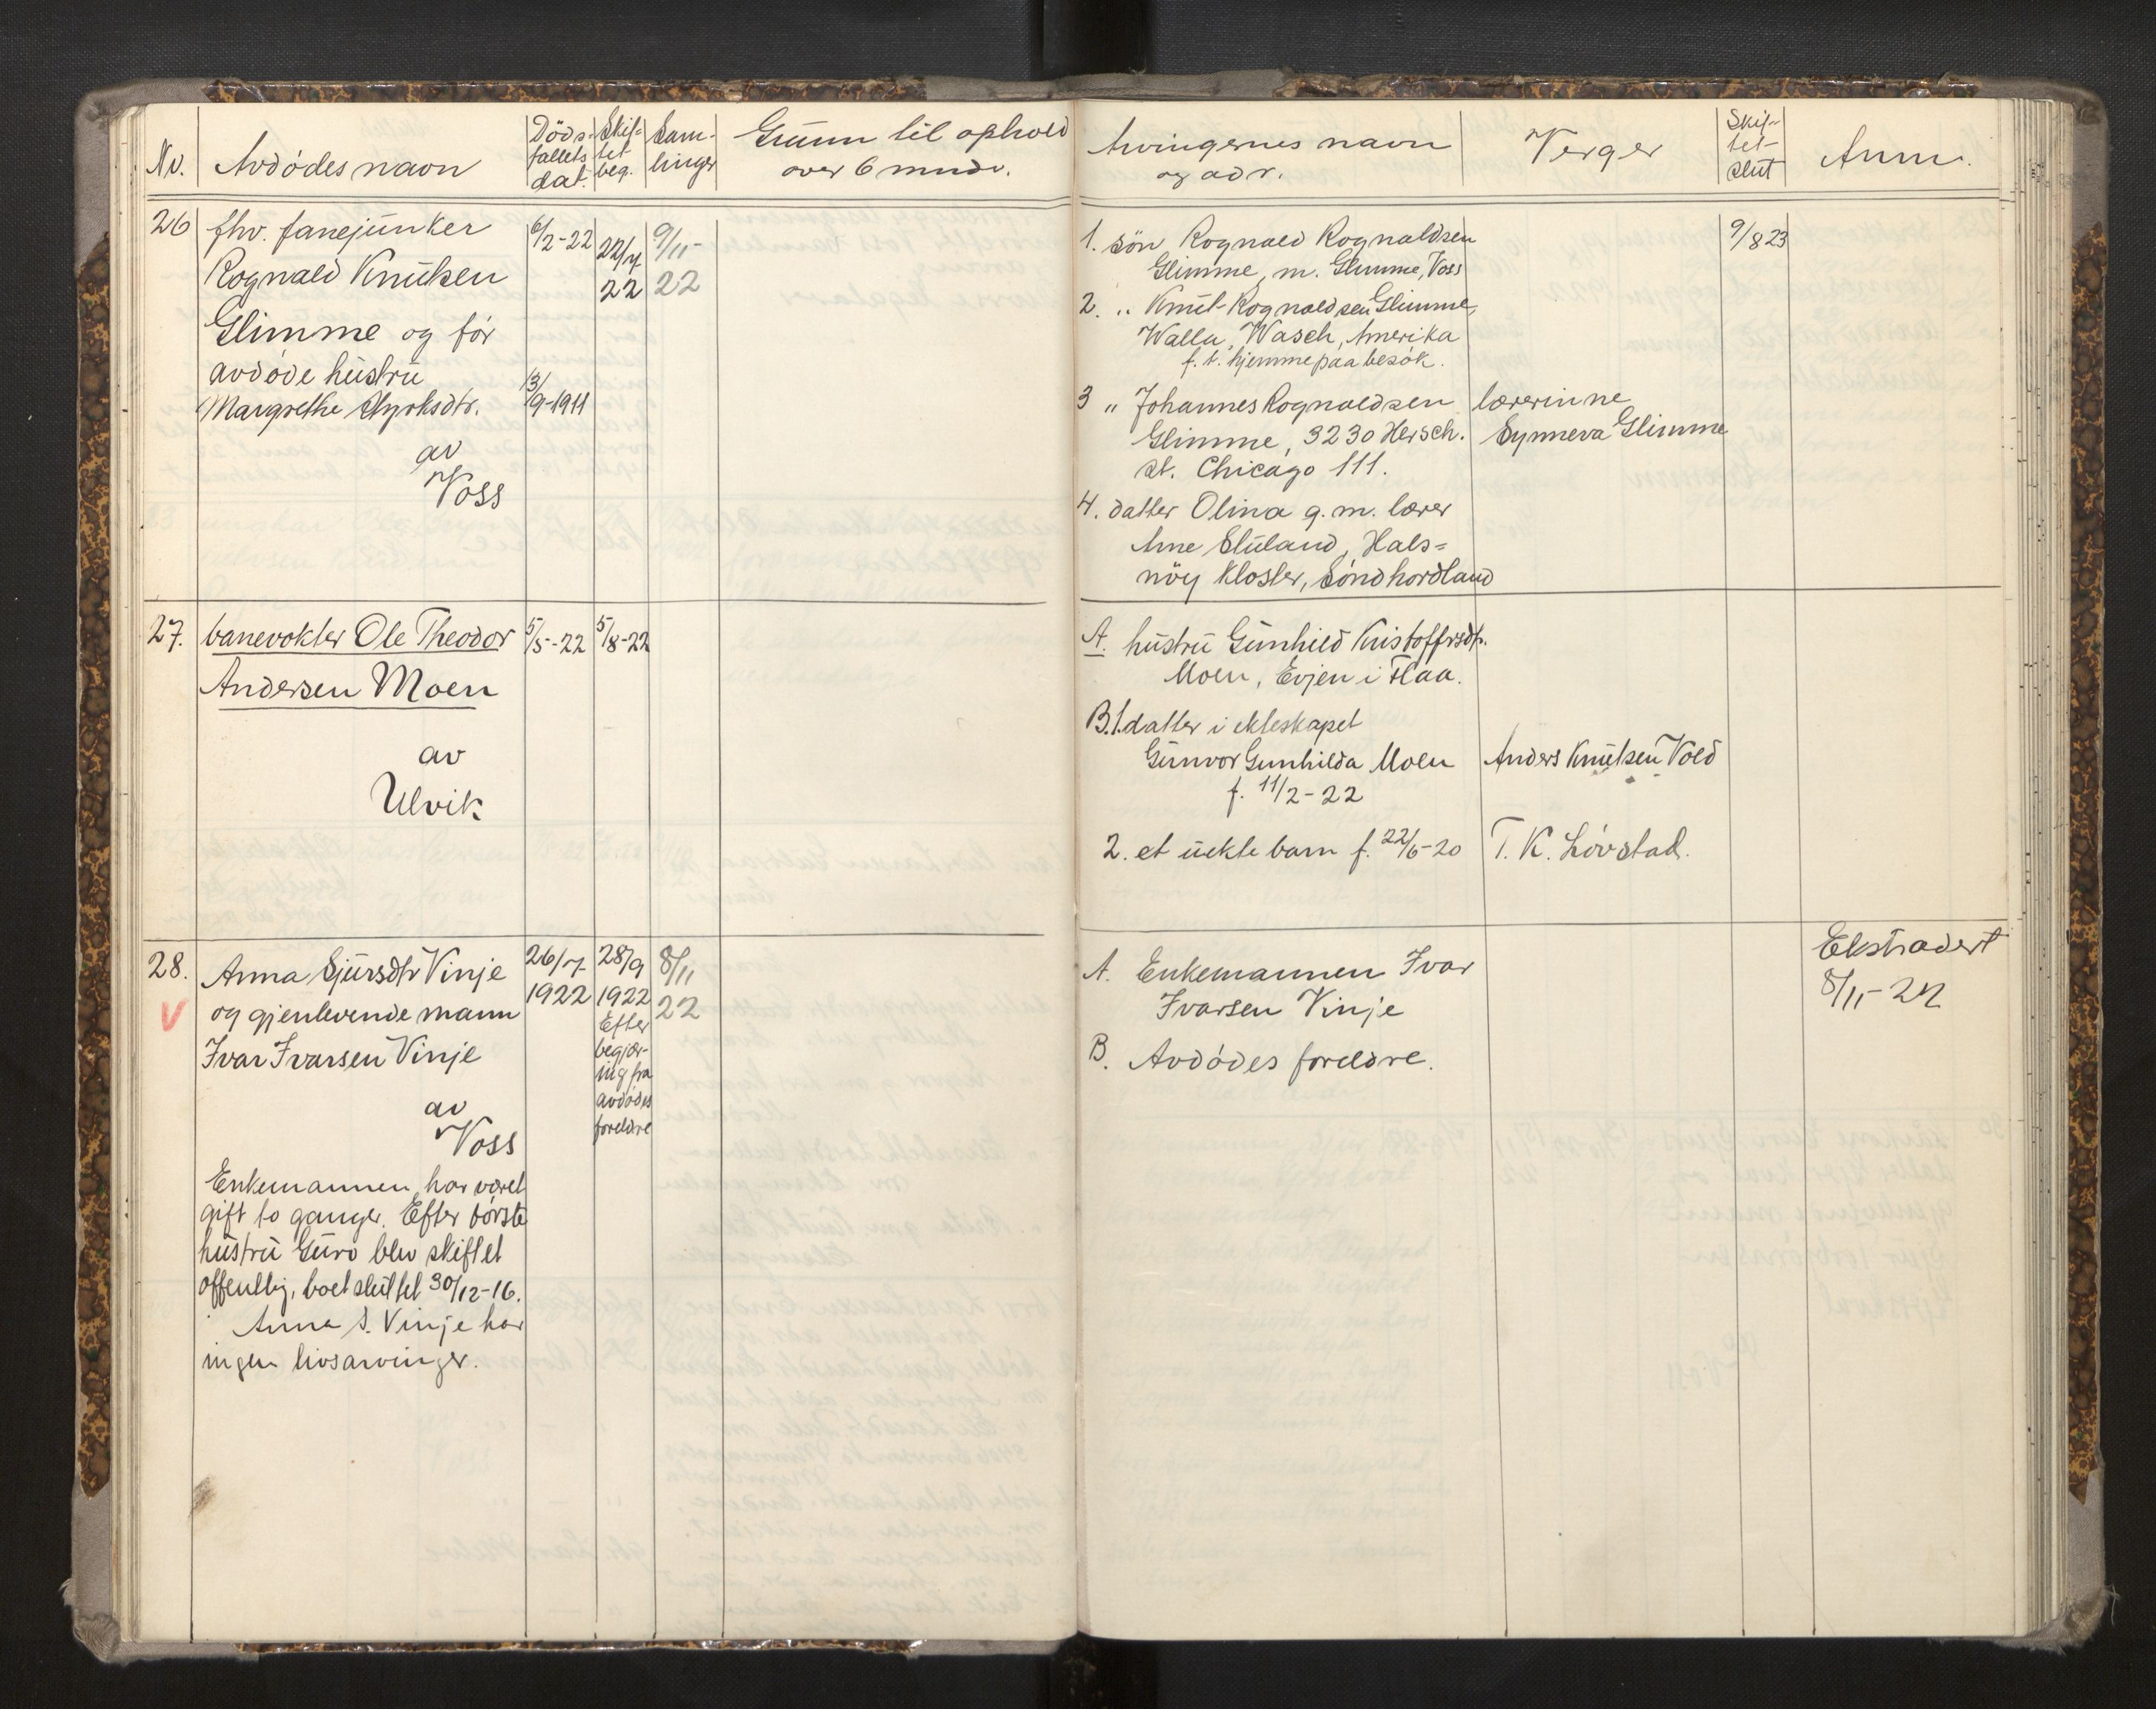 Nr.
Avdødes navn
Døds-
fallets
dat.
Skif-
tet
beg.
Sam-
linger
Grunn til ophold
over 6 mndr.
Arvingernes navn
og adr.
Verger
Skif-
tet-
slut
Anm.
26
fhv. fanejunker
Rognald Knutsen
Glimme og før
avdøde hustru
Margrethe Styrksdtr.
av
Voss
6/2-22
13/9-1911
22/7
22
9/11-
22
1. søn Rognald Rognaldsen
Glimme, m. Glimme, Voss
2. " Knut Rognaldsen Glimme,
Walla, Wasch, Amerika
f. t. hjemme paa besøk.
3 " Johannes Rognaldsen
Glimme, 3230 Hersch.
st. Chicago Ill.
4. datter Olina g. m. lærer
Arne Støland, Hals=
nöy Kloster, Söndhordland
lærerinne
Synneva Glimme
9/8 23
27.
banevokter Ole Theodor
Andersen Moen
av
Ulvik
5/5-22
5/8-22
A. hustru Gunhild Kristoffersdtr.
Moen, Evjen i Flaa.
B.1. datter i ekteskapet
Gunvor Gunhilda Moen
f. 11/2-22
2. et uekte barn f. 22/6-20
Anders Knutsen Vold
T. K. Lövstad.
28.
V
Anna Sjursdtr Vinje
og gjenlevende mann
Ivar Ivarsen Vinje
av
Voss
Enkemannen har været
gift to ganger. Efter første
hustru Guro blev skiftet
offentlig, boet sluttet 30/12-16.
Anna S. Vinje har
ingen livsarvinger.
26/7-
1922
28/9
1922
Efter
begjær-
ing fra
avdødes
foreldre
8/11
22
A. Enkemannen Ivar
Ivarsen Vinje
B. Avdødes foreldre.
Ekstradert
8/11-22